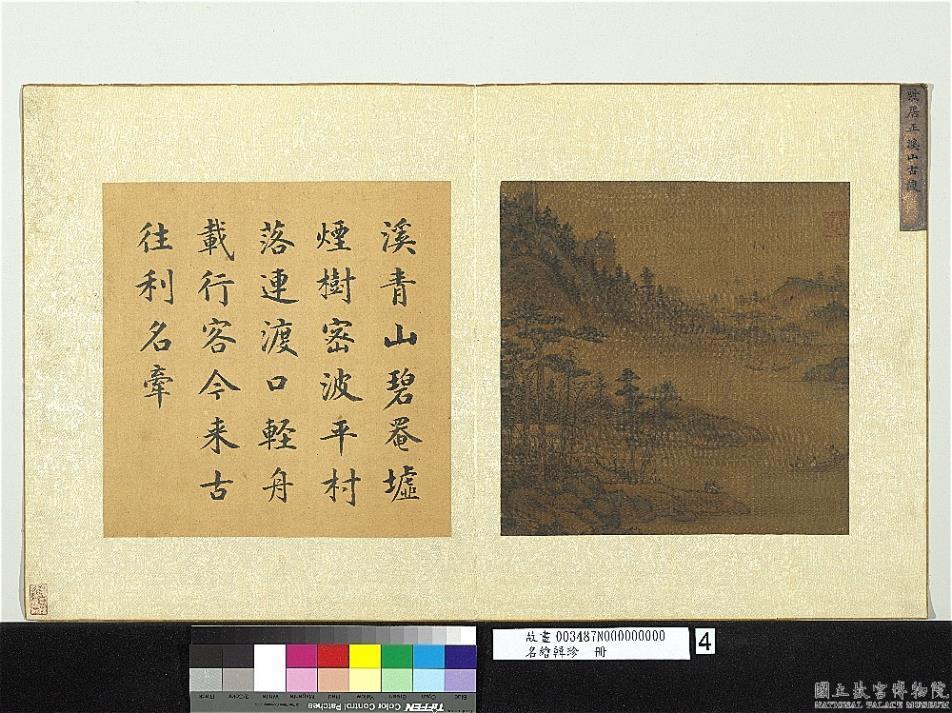 居正溪山古渡
溪青山碧罨墟
煙樹密波平村
落連渡口軽舟
載行客今来古
往利名牽
故畫 003487N000000000
名繪韓珍 冊
4
TIFFEN Color Control Patches
Black
3/Color
White
Magenta
Red
Yellow
Green
Cyan
Blue
國立故宮博物院
NATIONAL PALACE MUSEUM